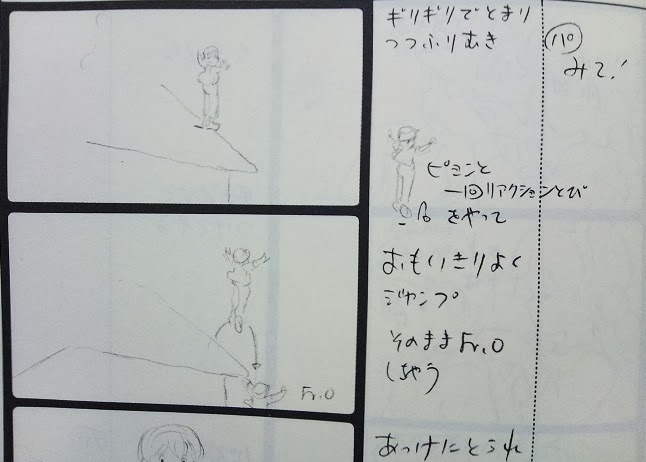 ギリギリでとまり
つつふりむき
パ
みて!
ピョンと
一回リアクションとび
をやって
おもいきりよく
ジャンプ
そのままFr.O
しちゃう
Fr.O
あっけにとられ